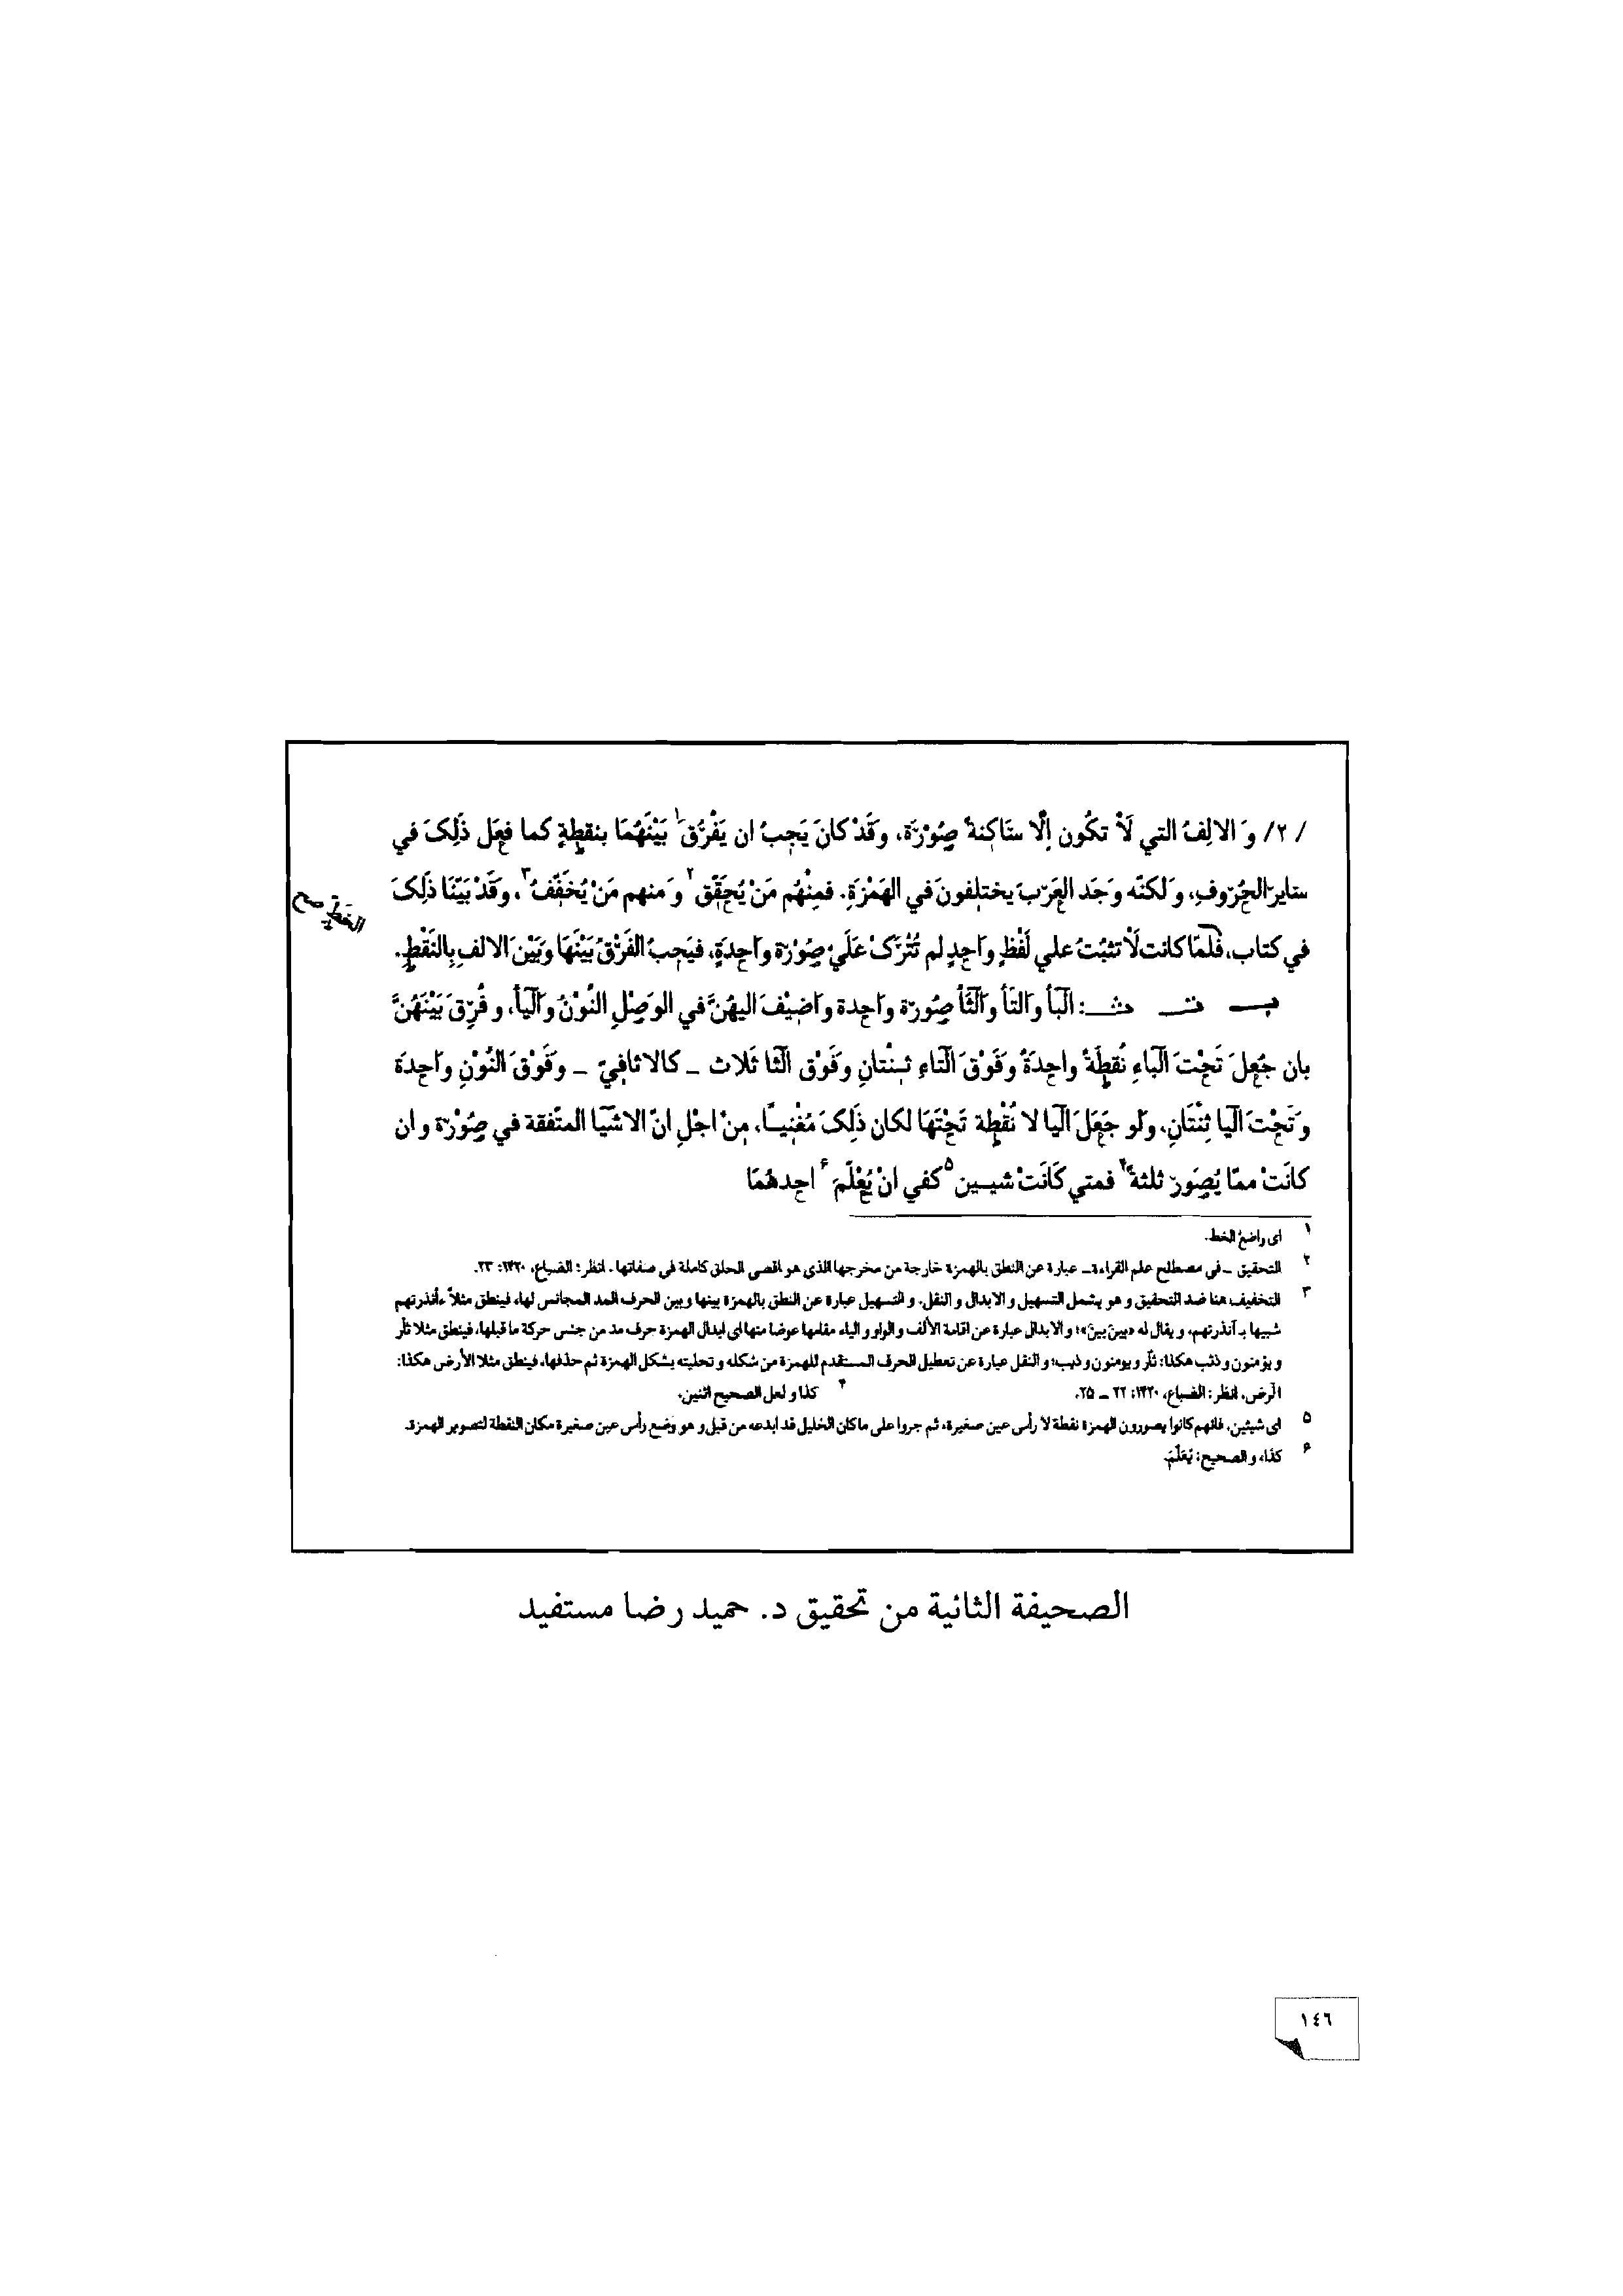 / ٢/ وَ الالِفُ التي لَاْ تكُون إلّا سَاكِنةً صُوْرَة، وَقَدْ كانَ يَجِبُ ان يَفْرُق١َ بَيْنَهُمَا بنقطةٍ كما فعَل ذَلِكَ في
سَاير الحُرُوفِ، وَلكنّه وَجَد العَرَبَ يختلِفونَ في الهَمْزَةِ. فمِنْهُم مَنْ يُحَقّق٢ وَ منهم مَنْ يُخَفّفُ٣، وَقَدْ بَيّنَا ذَلِكَ
الخط صح
في كتاب، فَلَمّا كانت لَاْ تثبُتُ علي لَفْظٍ واَحِدٍ لم تُتْرَكْ عَلَيْ صُوْرَة واَحِدَةٍ، فيَجِبُ الفَرْقُ بَيْنَهَا وَبَيْن الالفِ بالنَقْطِ.
بـ تـ ثـ: البَأ وَالتَأ وَالثَأ صُورَة واَحِدة واَضِيْفَ اليهُنَّ في الوَصْلِ النُوْنُ وَاليَأ، و فُرِّقَ بَيْنَهُنَّ
بان جُعِلَ تَحْتَ البَاءِ نُقطَةً واحِدَةً وَفَوْقَ التَاءِ ثِنْتَانِ وَفَوْق الثا ثَلاث _ كالاثافِيّ _ وَفَوْقَ النُوْنِ واَحِدَة
وَتَحْتَ اليا ثِنْتَانِ، وَلو جَعَلَ اليا لا نُقْطة تَحْتَهَا لكان ذَلِكَ مُغْنِيـاً، مِنْ اجْلِ انّ الاشيَا المتّفقة في صُوْرَة و ان
كانَتْ ممّا يُصَوَر ثلثةً٤ فمتي كَانَتْ شيـين٥ كفي انْ يُعْلَّمَ۶ احِدهُمَا
١ اى واضعُ الخط.
٢ التحقيق _ في مصطلح علم القراءة _ عبارة عن النطق بالهمزة خارجة من مخرجها الذي هو اقصى الحلق كاملة في صفاتها. انظر: الضباع، ١٤٢٠: ٢٣.
٣ التخفيف هنا ضد التحقيق و هو يشمل التسهيل و الابدال و النقل. و التسهيل عبارة عن النطق بالهمزة بينها و بين الحرف المد المجانس لها، فينطق مثلاً ءأنذرتهم
شبيها بـ آنذرتهم، و يقال له «بينَ بينَ»؛ و الابدال عبارة عن اقامة الألف و الواو و الياء مقامها عوضا منها اى ابدال الهمزة حرف مد من جنس حركة ما قبلها، فينطق مثلا ثأر
و يؤمنون و ذئب هكذا: ثآر و يومنون و ذيب؛ و النقل عبارة عن تعطيل الحرف المستقدم للهمزة من شكله و تحليته بشكل الهمزة ثم حذفها، فينطق مثلا الأرض هكذا:
الَرض. انظر: الضباع، ١٤٢٠: ٢٢ _ ٢٥. ٤ كذا و لعل الصحيح اثنين.
٥ اى شيئين. فانهم كانوا يصورون الهمزة نقطة لا رأس عين صغيرة، ثم جروا على ما كان الخليل قد ابدعه من قبل و هو وضع رأس عين صغيرة مكان النقطة لتصوير الهمزة.
۶ كذا، و الصحيح: يُعَلَّمَ.
الصحيفة الثانية من تحقيق د. حميد رضا مستفيد
١٤٦